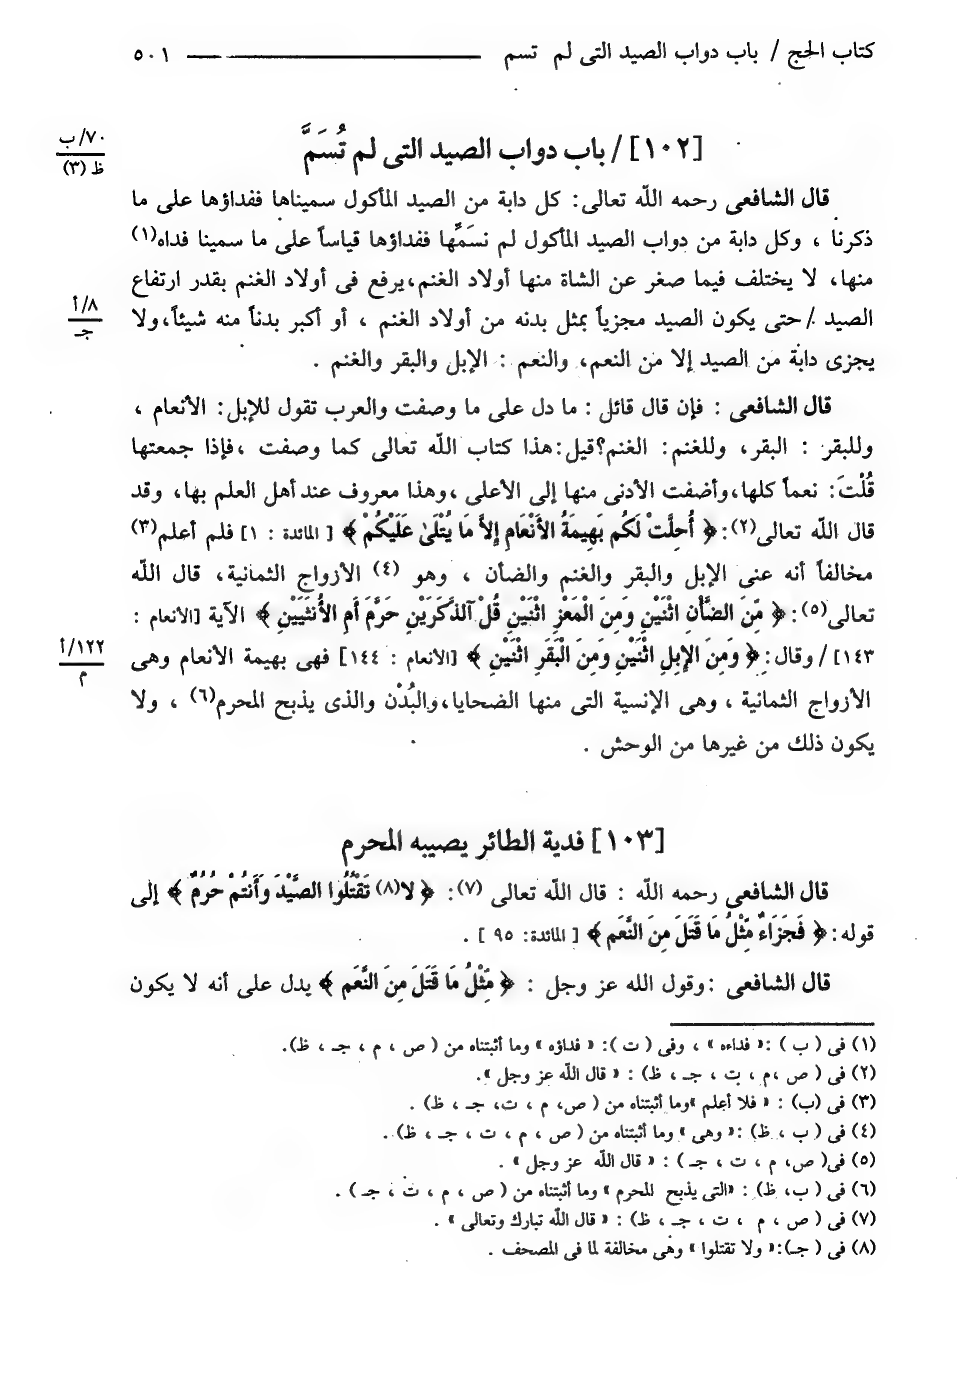 كتاب الحج / باب دواب الصيد التى لم تسم ــــــــ ٥٠١
[١٠٢] / باب دواب الصيد التى لم تُسَمَّ
٧٠/ب
ظ (٣)
قال الشافعى رحمه اللّه تعالى: كل دابة من الصيد المأكول سميناها ففداؤها على ما
ذكرنا ، وكل دابة من دواب الصيد المأكول لم نسَمِّها ففداؤها قياساً على ما سمينا فداه(١)
منها، لا يختلف فيما صغر عن الشاة منها أولاد الغنم،يرفع فى أولاد الغنم بقدر ارتفاع
٨/أ
جـ
الصيد / حتى يكون الصيد مجزياً بمثل بدنه من أولاد الغنم ، أو أكبر بدناً منه شيئاً،ولا
يجزى دابة من الصيد إلا من النعم، والنعم : الإبل والبقر والغنم .
قال الشافعى : فإن قال قائل : ما دل على ما وصفت والعرب تقول للإبل: الأنعام ،
وللبقر : البقر، وللغنم: الغنم؟قيل:هذا كتاب اللّه تعالى كما وصفت ،فإذا جمعتها
قُلْتَ: نعماً كلها،وأضفت الأدنى منها إلى الأعلى ،وهذا معروف عند أهل العلم بها، وقد
قال اللّه تعالى(٢):﴿ أُحِلَّتْ لَكُم بَهِيمَةُ الأَنْعَامِ إِلاَّ مَا يُتْلَىٰ عَلَيْكُمْ ﴾ [ المائدة : ١] فلم أعلم(٣)
مخالفاً أنه عنى الإبل والبقر والغنم والضأن ، وهو (٤) الأزواج الثمانية، قال اللّه
تعالى(٥):﴿ مِّنَ الضَّأْنِ اثْنَيْنِ وَمِنَ الْمَعْزِ اثْنَيْنِ قُلْ آلذَّكَرَيْنِ حَرَّمَ أَمِ الأُنثَيَيْنِ ﴾ الآية [الأنعام :
١٢٢/أ
م
١٤٣] / وقال:﴿ وَمِنَ الإِبِلِ اثْنَيْنِ وَمِنَ الْبَقَرِ اثْنَيْنِ ﴾ [الأنعام : ١٤٤] فهى بهيمة الأنعام وهى
الأزواج الثمانية ، وهى الإنسية التى منها الضحايا،والبُدْن والذى يذبح المحرم(٦) ، ولا
يكون ذلك من غيرها من الوحش .
[١٠٣] فدية الطائر يصيبه المحرم
قال الشافعى رحمه اللّه : قال اللّه تعالى (٧): ﴿ لا(٨) تَقْتُلُوا الصَّيْدَ وَأَنتُمْ حُرُمٌ ﴾ إلى
قوله:﴿ فَجَزَاءٌ مِّثْلُ مَا قَتَلَ مِنَ النَّعَمِ ﴾ [ المائدة: ٩٥ ] .
قال الشافعى :وقول الله عز وجل : ﴿ مِّثْلُ مَا قَتَلَ مِنَ النَّعَمِ ﴾ يدل على أنه لا يكون
(١) فى ( ب ) :« فداءه » ، وفى ( ت ): « فداؤه » وما أثبتناه من ( ص ، م ، جـ ، ظ).
(٢) فى ( ص ،م ، ت ، جـ ، ظ) : « قال اللّه عز وجل ».
(٣) فى (ب) : « فلا أعلم »وما أثبتناه من ( ص، م ، ت، جـ ، ظ) .
(٤) فى ( ب ، ظ) :« وهى » وما أثبتناه من ( ص ، م ، ت ، جـ ، ظ) .
(٥) فى( ص، م ، ت ، جـ ) : « قال اللّه عز وجل » .
(٦) فى ( ب، ظ) : «التى يذبح المحرم » وما أثبتناه من ( ص ، م ، ت ، جـ ) .
(٧) فى ( ص ، م ، ت ، جـ ، ظ) : « قال اللّه تبارك وتعالى » .
(٨) فى ( جـ):« ولا تقتلوا » وهى مخالفة لما فى المصحف .